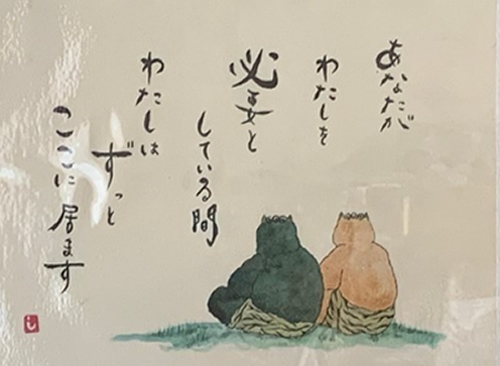 あなたが
わたしを
必要と
している間
わたしは
ずっと
ここに居ます
し